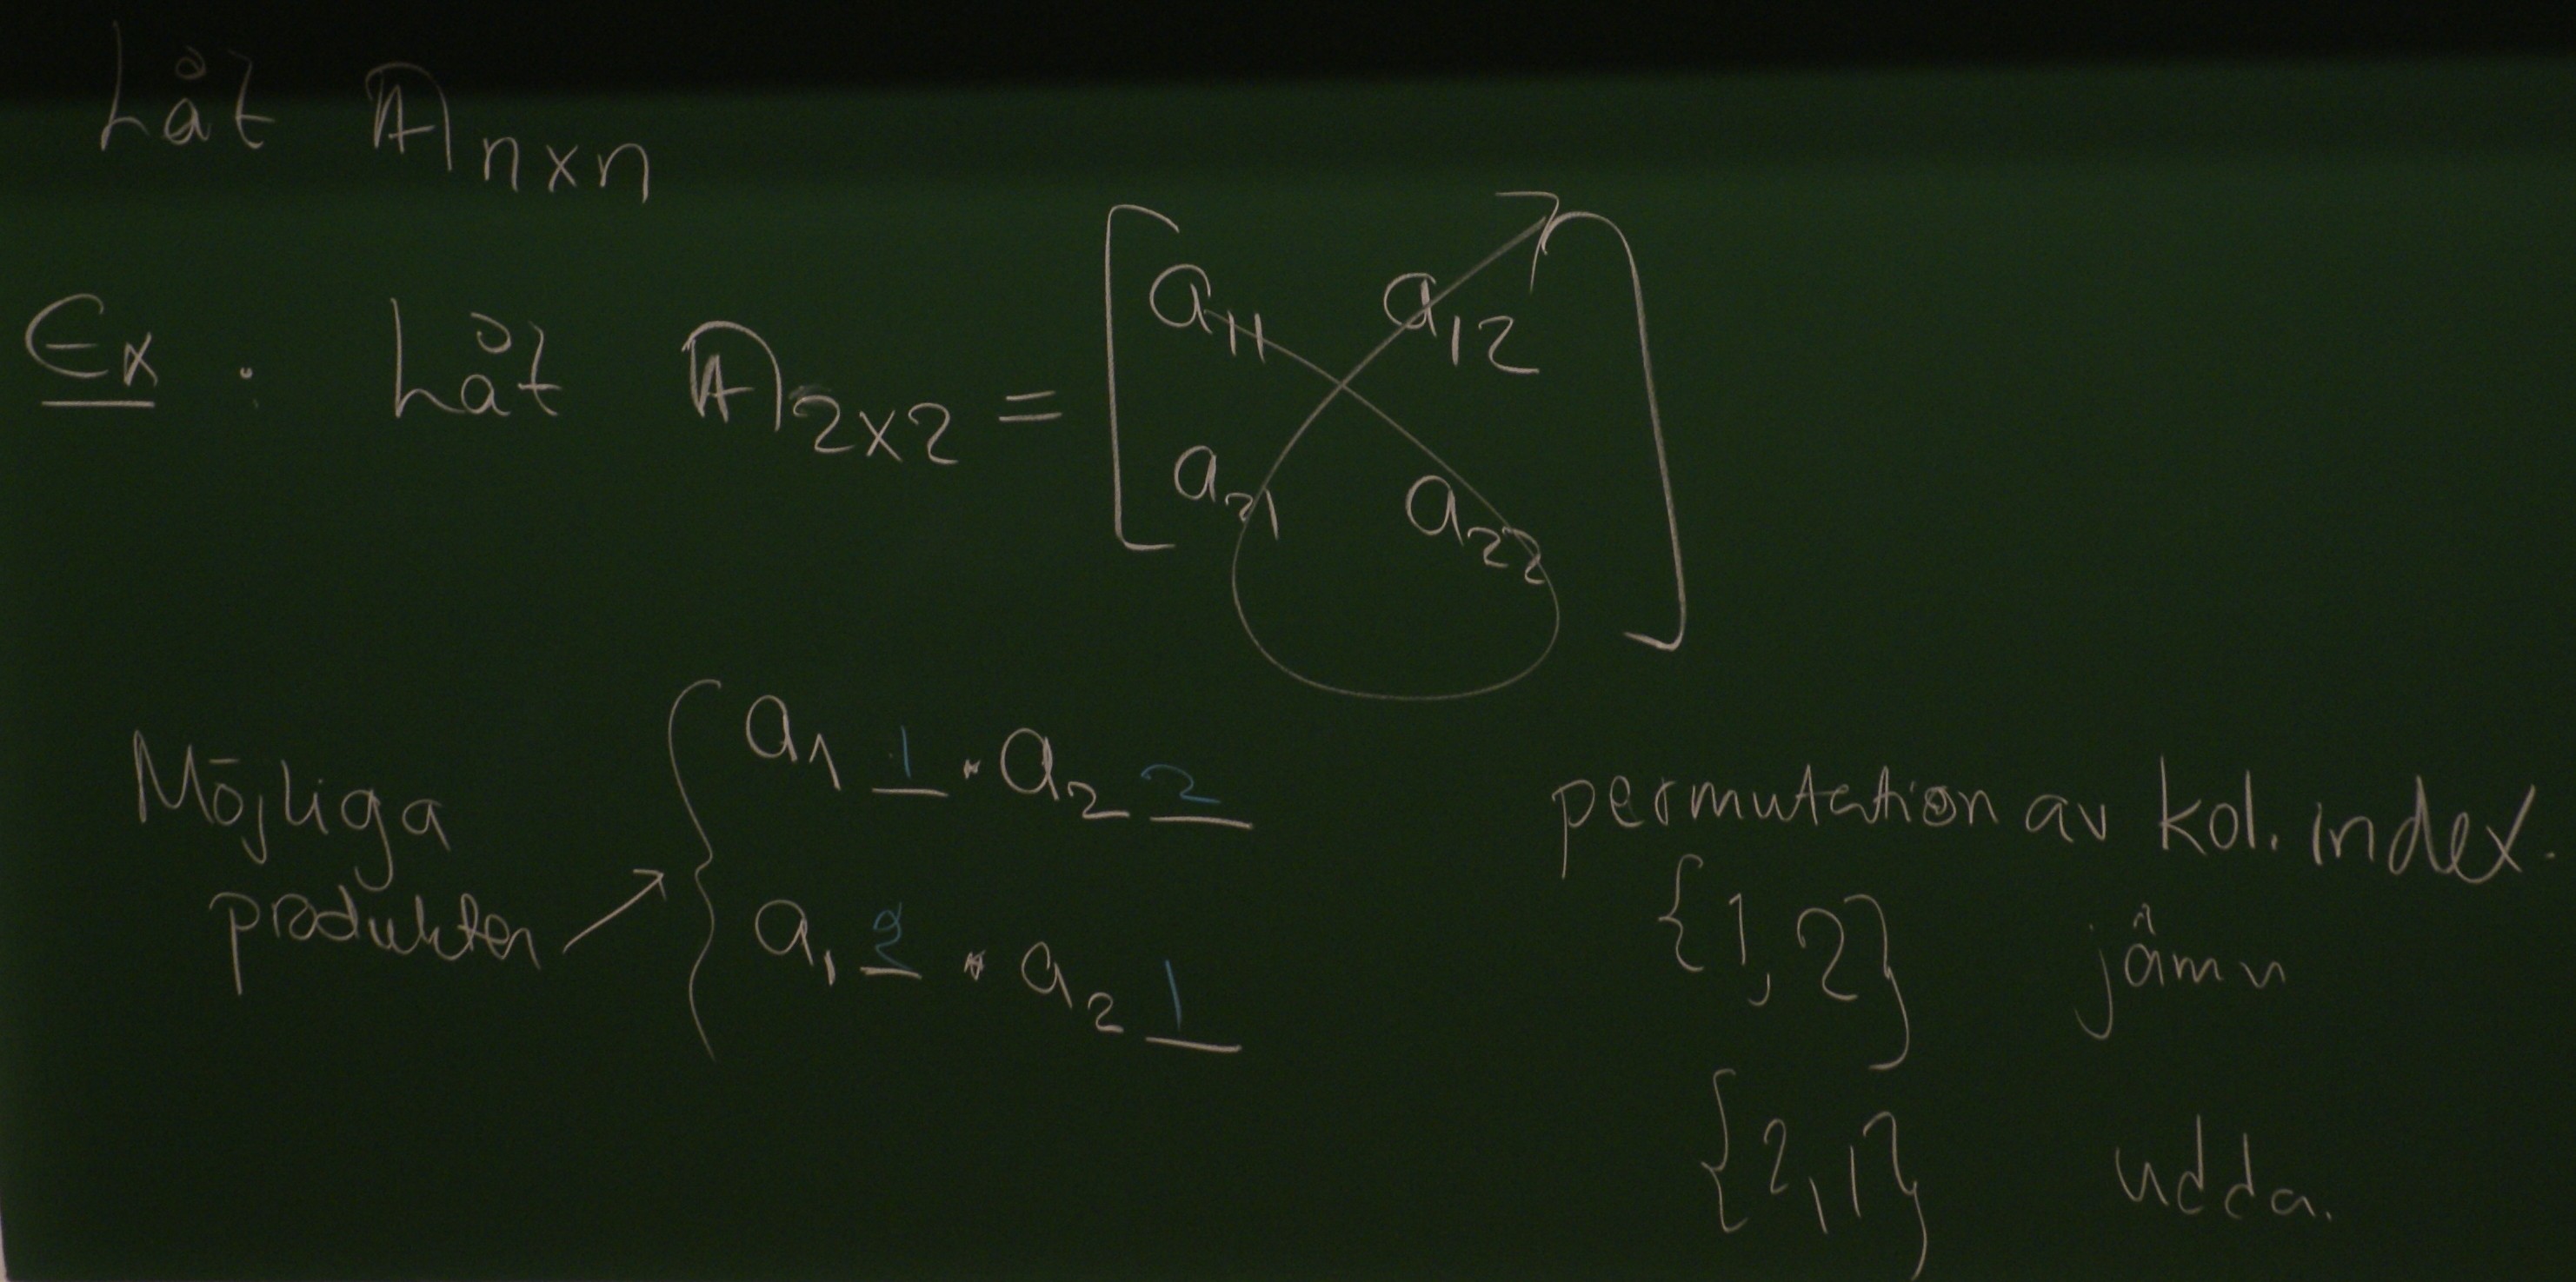 Låt A n×n
Ex : Låt A 2×2 = [ a11 a12
a21 a22 ]
Möjliga produkter → { a1 1 · a2 2
a1 2 · a2 1
permutation av kol. index.
{1, 2} jämn
{2, 1} udda.